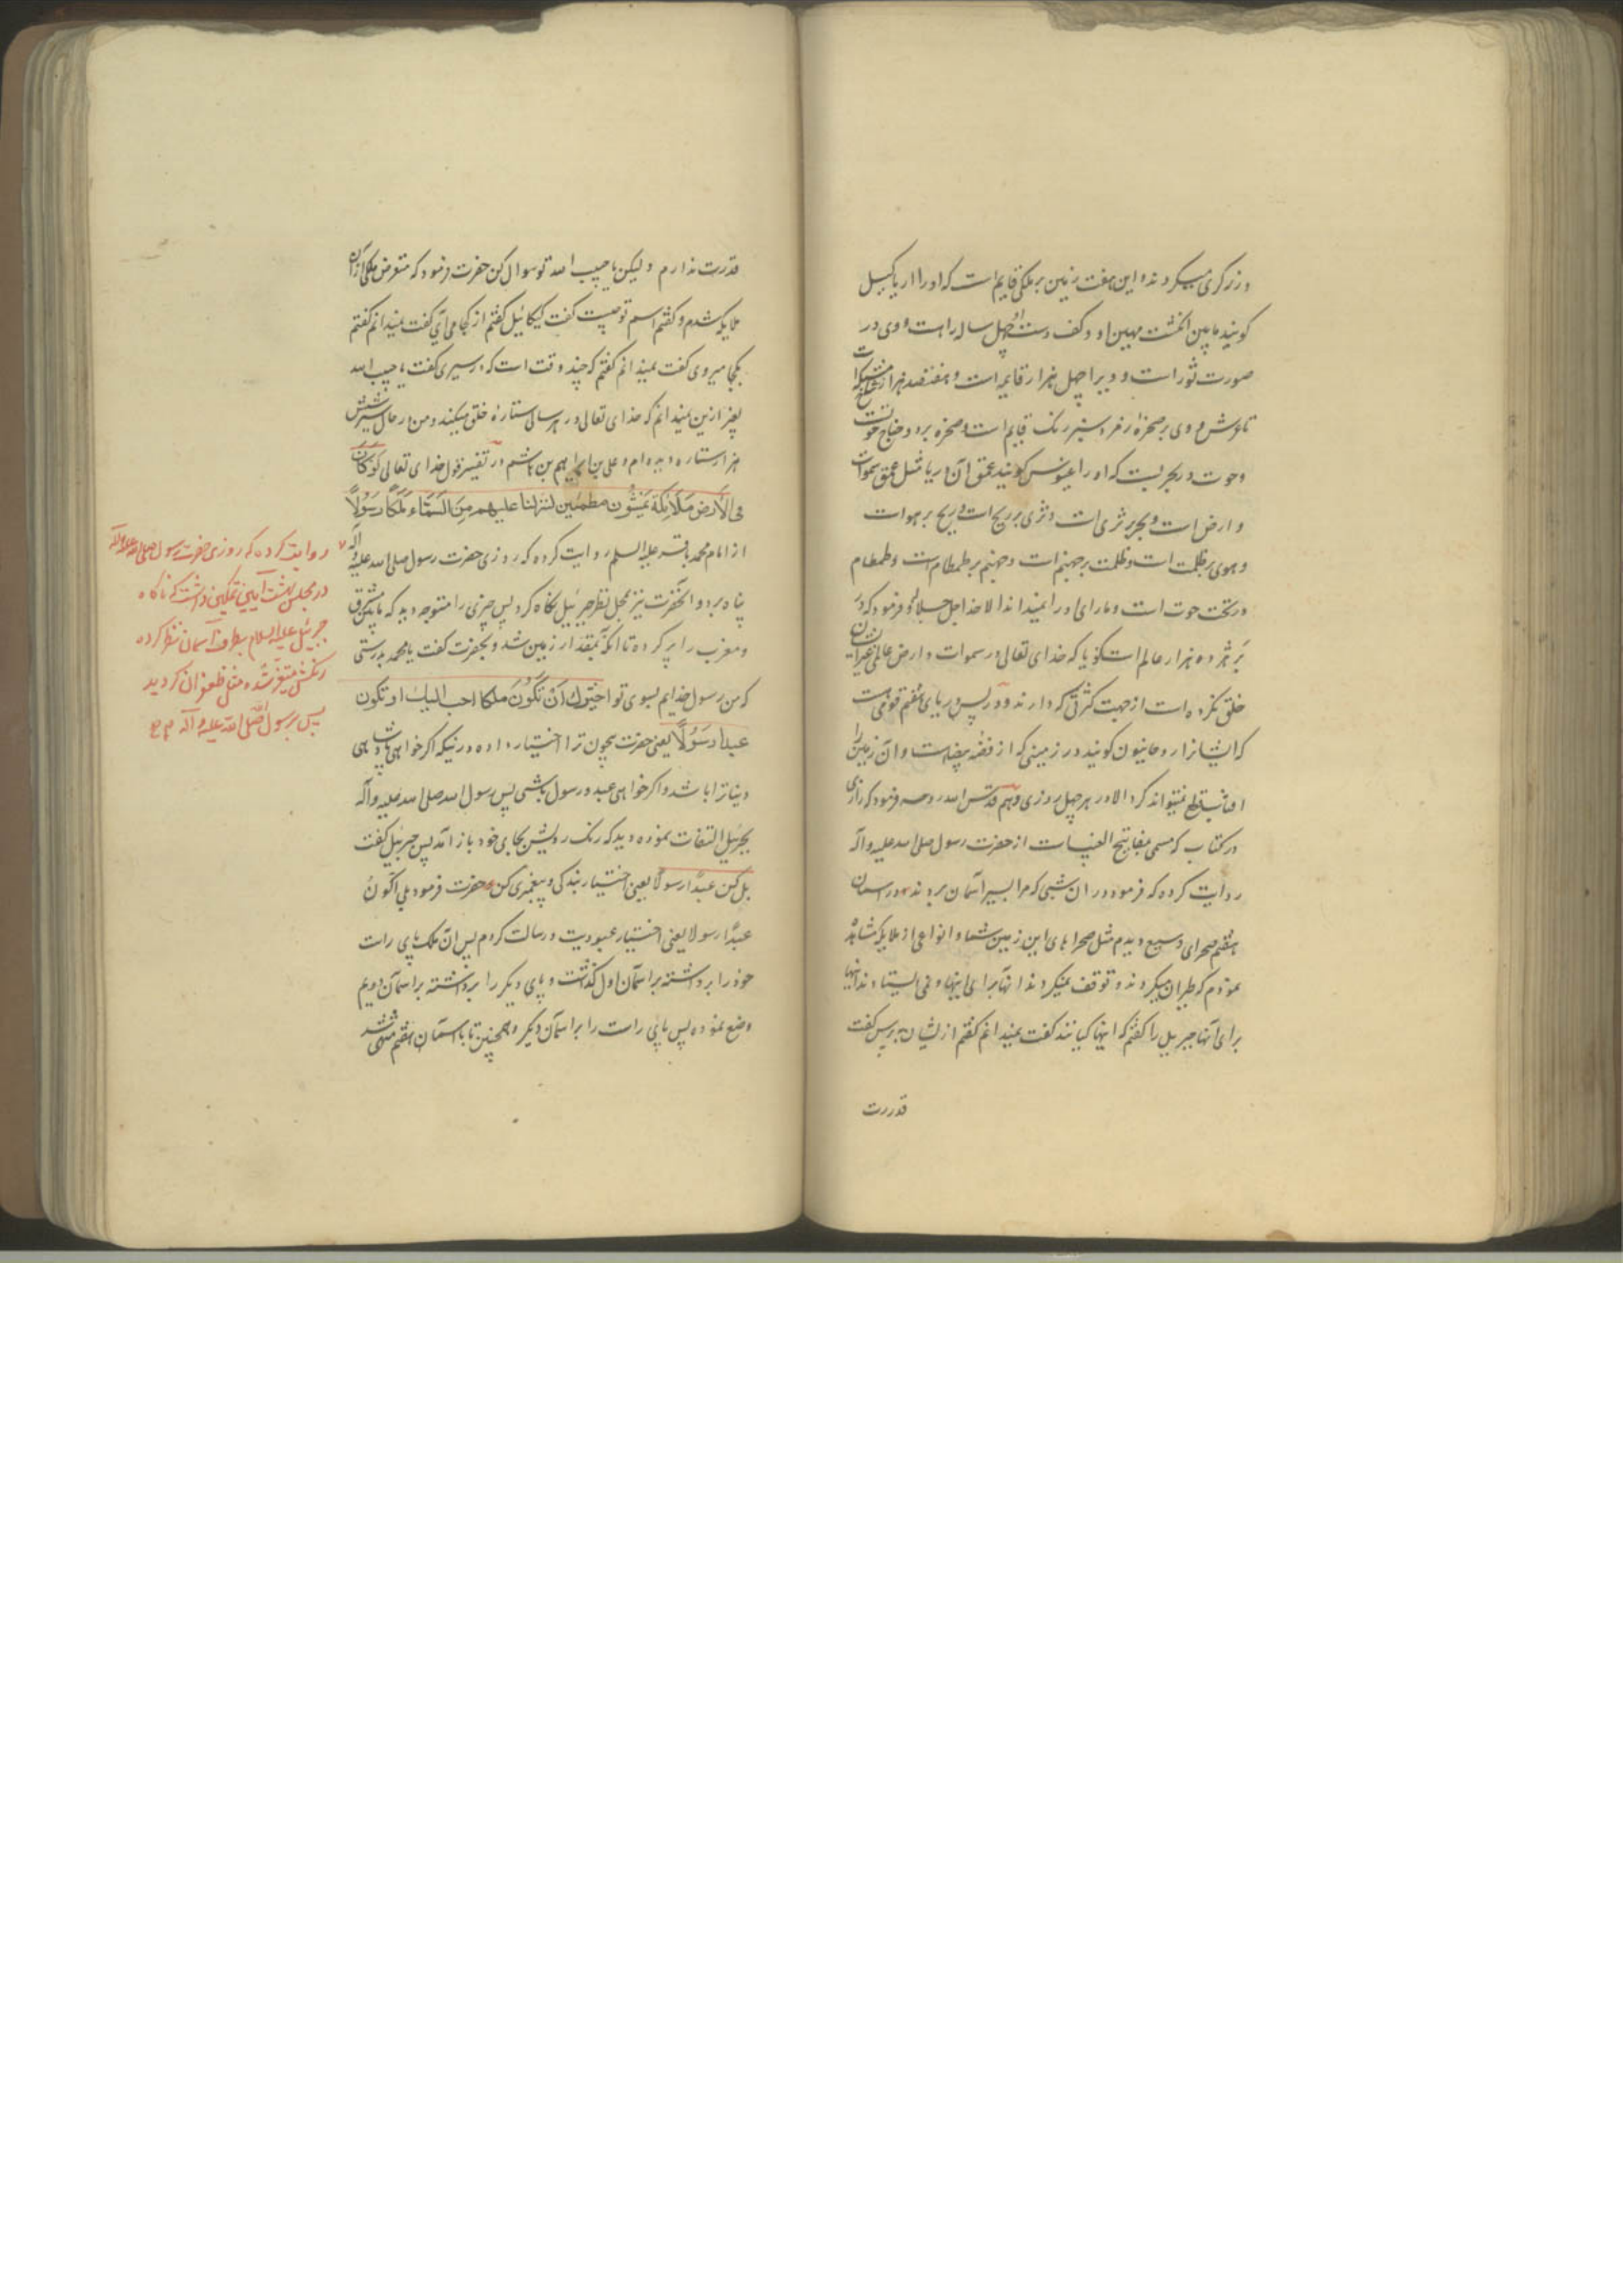 و زرگری میکردند و این هفت زمین بر ملکی قایم است که او را اریاکیل
گویند مابین انگشت مهین او و کف دست او چهل ساله راهست و وی در
صورت ثور است و ویرا چهل هزار قایمه است و هفتصد هزار
تا عرش و وی بر صخره زمرد سبز رنگ قایم است و صخره بر دو جناح حوت
و حوت در بحریست که او را عینوس گویند عمق آن دریا مثل عمق سموات
و ارض است و بحر بر ثری است و ثری بر ریح است و ریح بر هواست
و هوی بر ظلمت است و ظلمت بر جهنم است و جهنم بر طمطام است و طمطام
در تحت حوت است و ماورای او را نمیداند الا خدا جل جلاله و فرمود که در
بر هژده هزار عالم است گویا که خدای تعالی در سموات و ارض عالمی غیر ایشان
خلق نکرده است از جهت کثرتی که دارند و در پس دریای هفتم قومیست
که ایشانرا روحانیون گویند در زمینی که از فضه بیضاست و آن زمین را
افتاب قطع نمیتواند کرد الا در هر چهل روزی و هم قدس الله روحه فرمود که رازی
در کتاب که مسمی بمفاتیح الغیب است از حضرت رسول صلی الله علیه و آله
روایت کرده که فرمود در ان شبی که مرا بسیر آسمان بردند در آسمان
هفتم صحرای وسیع دیدم مثل صحراهای این زمین شما و انواعی از ملایکه مشاهده
نمودم که طیران میکردند و توقف نمیکردند آنها برای اینها و نمی ایستادند اینها
برای آنها جبرییل را گفتم که اینها کیانند گفت نمیدانم گفتم از ایشان بپرس گفت
قدرت
قدرت ندارم و لیکن یا حبیب الله تو سوال کن حضرت فرمود که متعرض ملکی از آن
ملایکه شدم و گفتم اسم تو چیست گفت کیکائیل گفتم از کجا می آی گفت نمیدانم گفتم
بکجا میروی گفت نمیدانم گفتم که چند وقت است که در سیری گفت یا حبیب الله
بغیر ازین نمیدانم که خدای تعالی در هر سالی ستاره خلق میکند و من در حال سیر شش
هزار ستاره دیده ام و علی بن ابراهیم بن هاشم در تفسیر قول خدای تعالی لَوْ كَانَ
فِی الْاَرْضِ مَلَائِکَةٌ یَمْشُون مطمئنین لنزلنا علیهم مِنَ السَّمَاءِ مَلَکًا رَسُولًا
از امام محمد باقر علیه السلم روایت کرده که روزی حضرت رسول صلی الله علیه و آله
پناه برد و آنحضرت نیز بمحل نظر جبرئیل نگاه کرد پس چیزی را متوجه دید که مابین مشرق
و مغرب را پر کرده تا انکه بمقدار زمین شد و بحضرت گفت یا محمد بدرستی
که من رسول خدایم بسوی تو اخیّرك اَنْ تَكُوْنَ ملكا احب الیك او تكون
عبدا رَسُوْلًا یعنی حضرت بیچون ترا اختیار داده در نیکه اگر خواهی پادشاهی
دنیا ترا باشد و اگر خواهی عبد و رسول باشی پس رسول الله صلی الله علیه و آله
بجبرئیل التفات نموده دید که رنگ رویش بجای خود باز آمد پس جبرئیل گفت
بل کن عبدًا رسولا یعنی اختیار بندگی و پیغمبری کن حضرت فرمود بلی اکونُ
عبدًا رسولا یعنی اختیار عبودیت و رسالت کردم پس ان ملک پای راست
خود را برداشته بر اسمان اول گذاشت و پای دیگر را برداشته بر اسمان دویم
وضع نموده پس پای راست را بر اسمان دیگر و همچنین تا باسمان هفتم منتهی شد
روایت کرده که روزی حضرت رسول صلی الله علیه و آله
در مجلس بهشت آیین تمکین داشت که ناگاه
جبرئیل علیه السلام بطرف آسمان نظر کرده
رنکش متغیر شده مثل زعفران گردید
پس برسول الله صلی الله علیه و آله